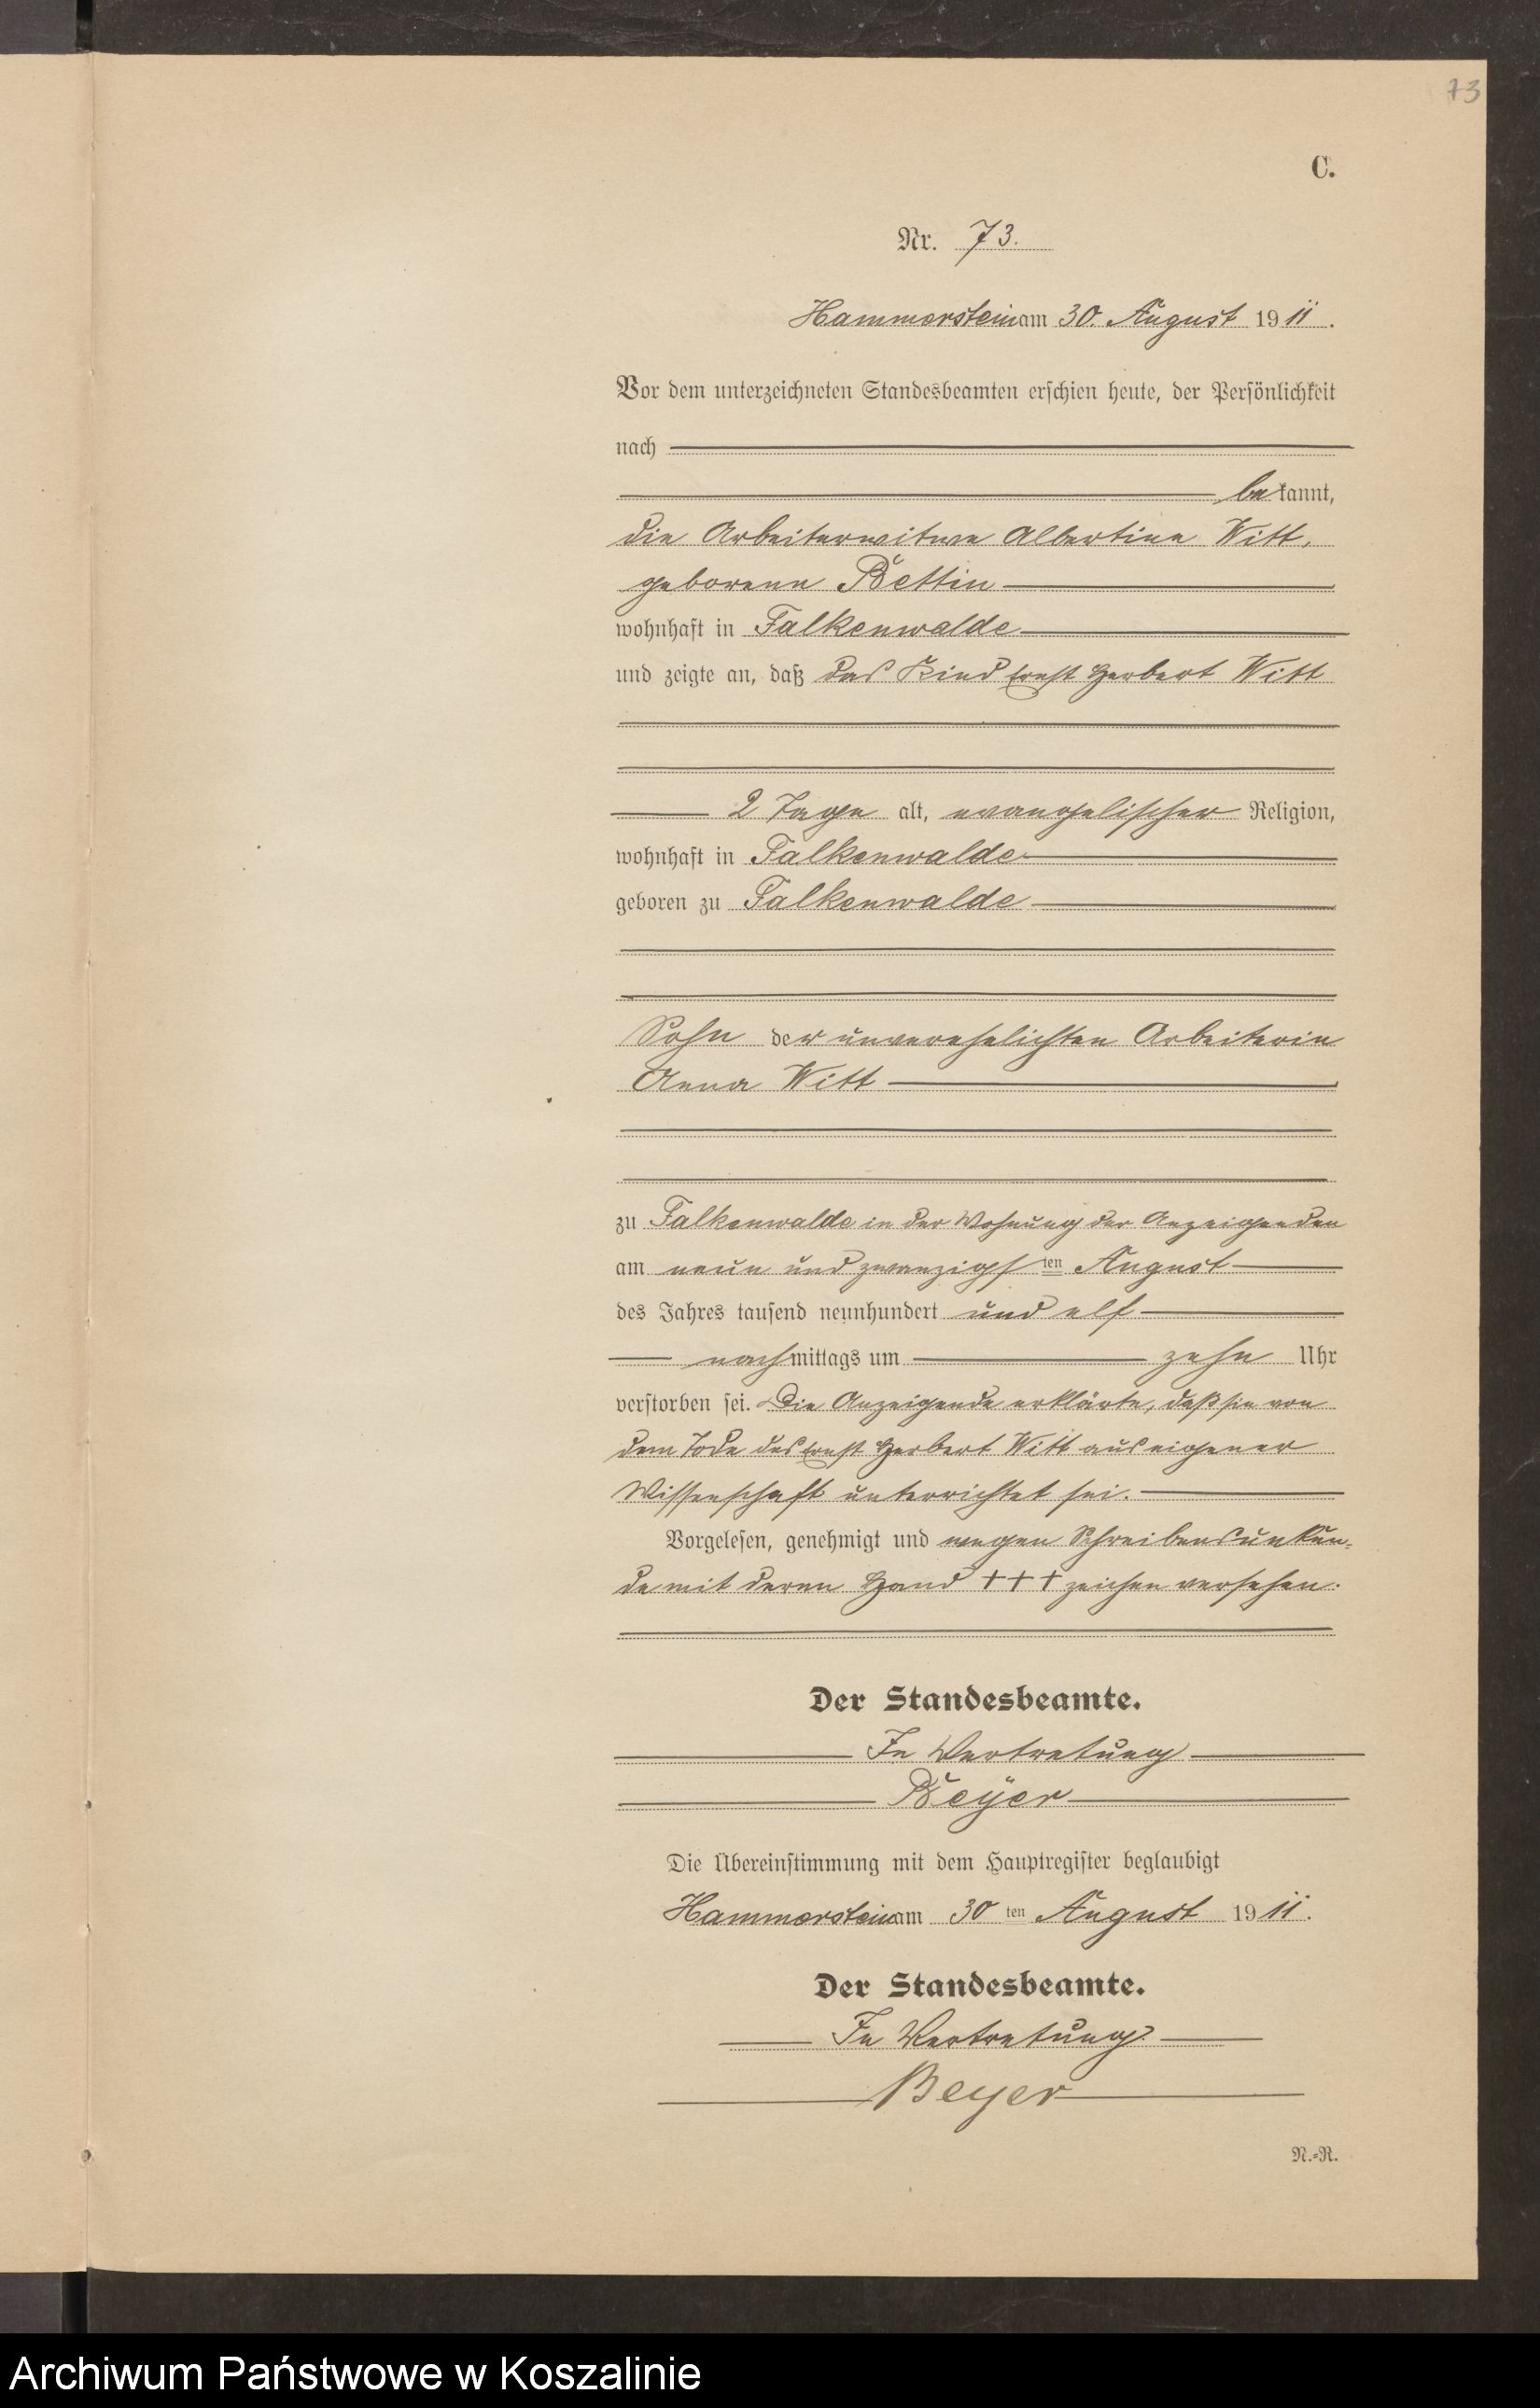 73
C.
Nr. 73.
Hammerstein am 30. August 1911.
Vor dem unterzeichneten Standesbeamten erschien heute, der Persönlichkeit
nach
bekannt,
die Arbeiterwitwe Albertine Witt,
geborene Bettin
wohnhaft in Falkenwalde
und zeigte an, daß das Kind Ernst Herbert Witt
2 Tage alt, evangelischer Religion,
wohnhaft in Falkenwalde
geboren zu Falkenwalde
Sohn der unverehelichten Arbeiterin
Anna Witt
zu Falkenwalde in der Wohnung der Anzeigenden
am neun und zwanzigsten August
des Jahres tausend neunhundert und elf
nachmittags um zehn Uhr
verstorben sei. Die Anzeigende erklärte, daß sie von
dem Tode des Ernst Herbert Witt aus eigener
Wissenschaft unterrichtet sei.
Vorgelesen, genehmigt und wegen Schreibensunkun-
de mit deren Hand +++ zeichen versehen.
Der Standesbeamte.
In Vertretung
Beyer
Die Übereinstimmung mit dem Hauptregister beglaubigt
Hammerstein am 30ten August 1911.
Der Standesbeamte.
In Vertretung
Beyer
N.-R.
Archiwum Państwowe w Koszalinie